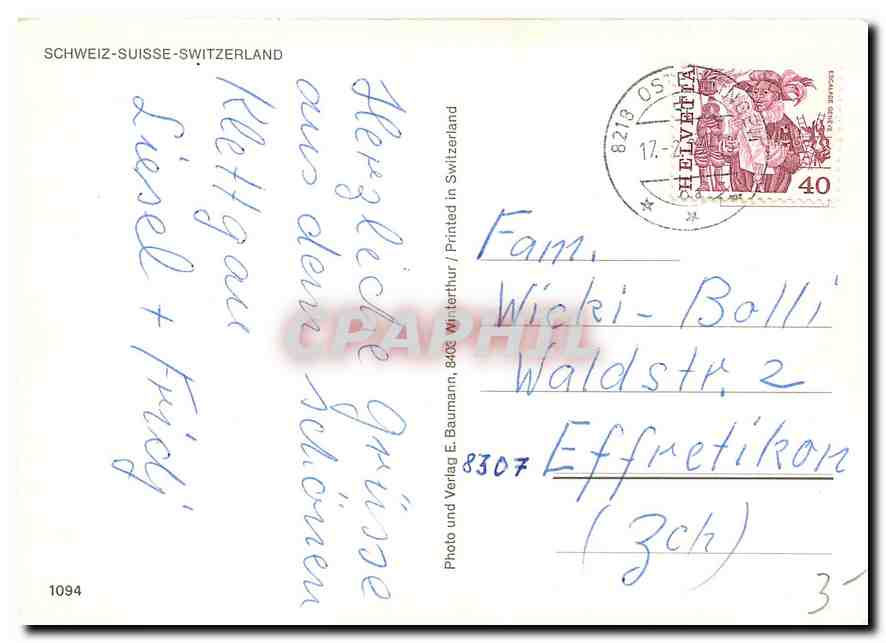 SCHWEIZ-SUISSE-SWITZERLAND
Herzliche Grüsse
aus dem schönen
Klettgau
Liesel + Fridj
Photo und Verlag E. Baumann, 8403 Winterthur / Printed in Switzerland
8218 OST
17.-2
HELVETIA
ESCALADE GENÈVE
40
Fam.
Wicki-Bolli
Waldstr. 2
8307 Effretikon
(Zch)
CPAPHIL
1094
3-